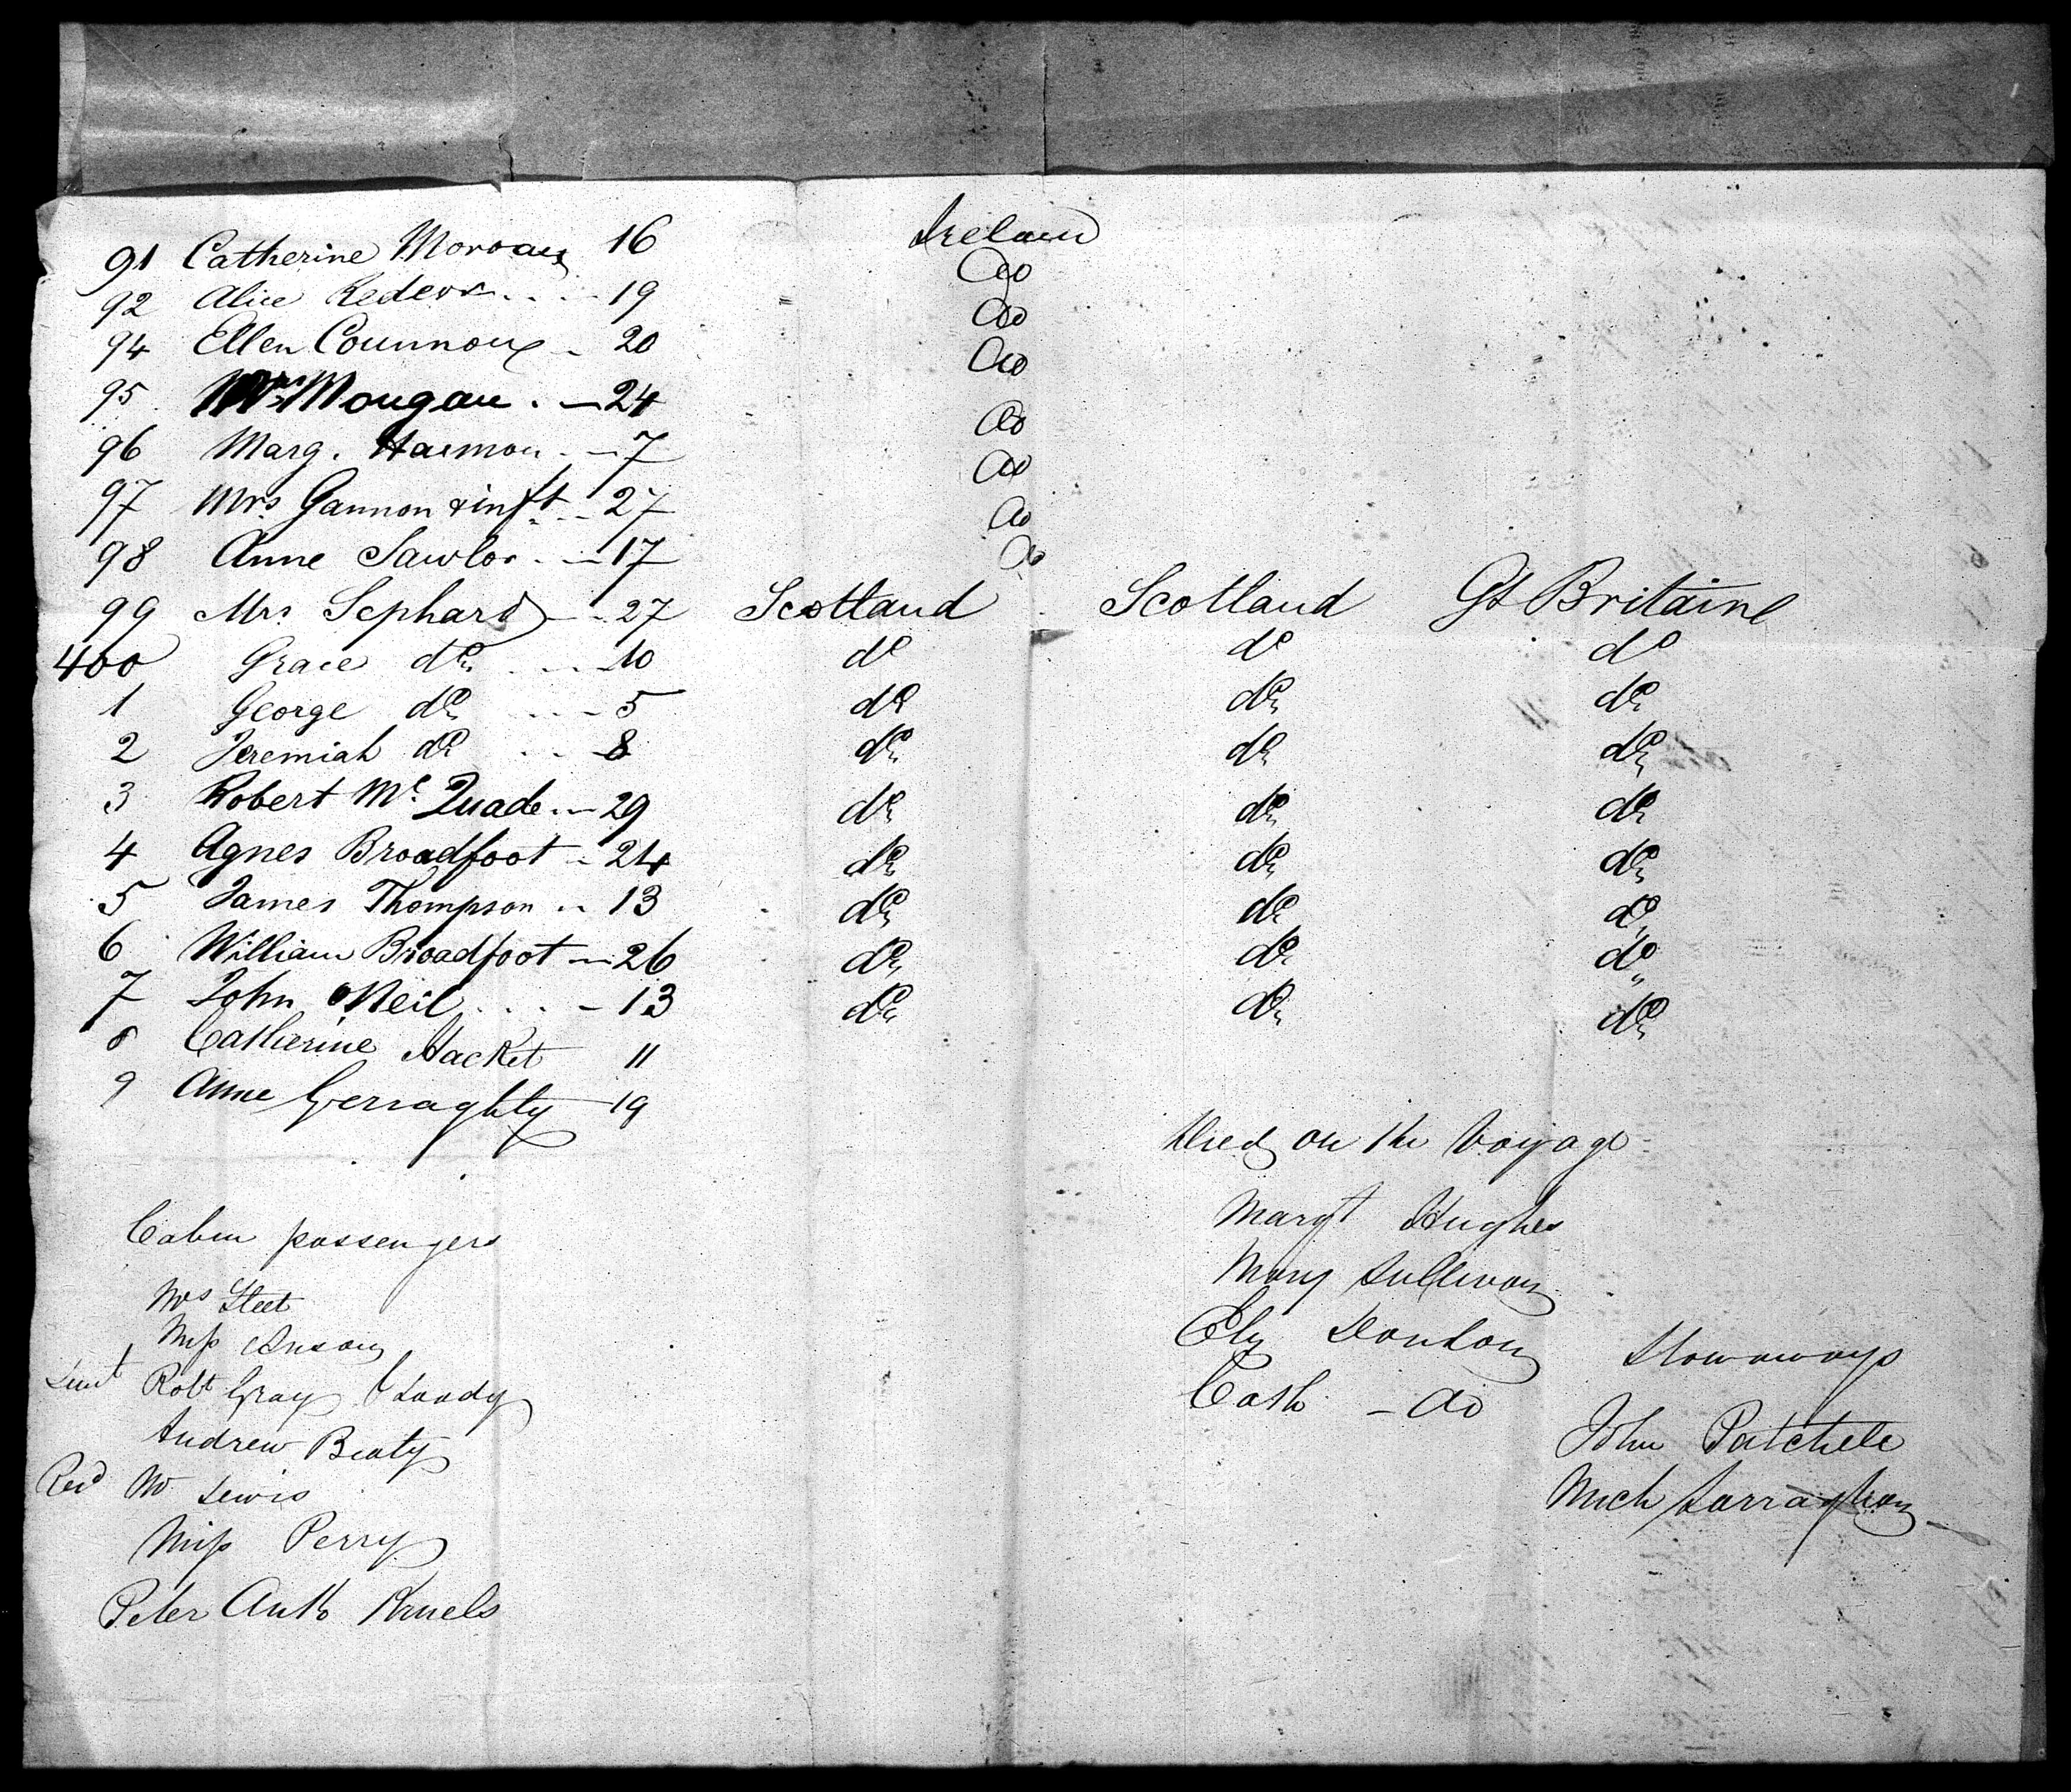 91 Catherine Moroau 16 Ireland
92 Alice Reder 19 do
94 Ellen Counnou 20 do
95 Mrs Mougau. 24 do
96 Marg. Harmon 7 do
97 Mrs Gannon & inft 27 do
98 Anne Sawlor 17 do
do
99 Mrs. Sephard 27 Scotland Scotland Gt Britaine
400 Grace do 10 do do do
1 George do 5 do do do
2 Jeremiah do 8 do do do
3 Robert Mc Quade 29 do do do
4 Agnes Broadfoot 24 do do do
5 James Thompson 13 do do do
6 William Broadfoot 26 do do do
7 John ONeil 13 do do do
8 Catherine Hacket 11
9 Anne Gerraghty 19
Died on the Voyage
Margt Hughes
Mary Sullivan
Donlon
Cath - do
Stowaways
John Patchele
Mich
Cabin passengers
Mrs Steet
Miss Anson
Lieut Robt Gray
Andrew Beaty
Revd Mr Lewis
Miss Perry
Peter Anth Kruels